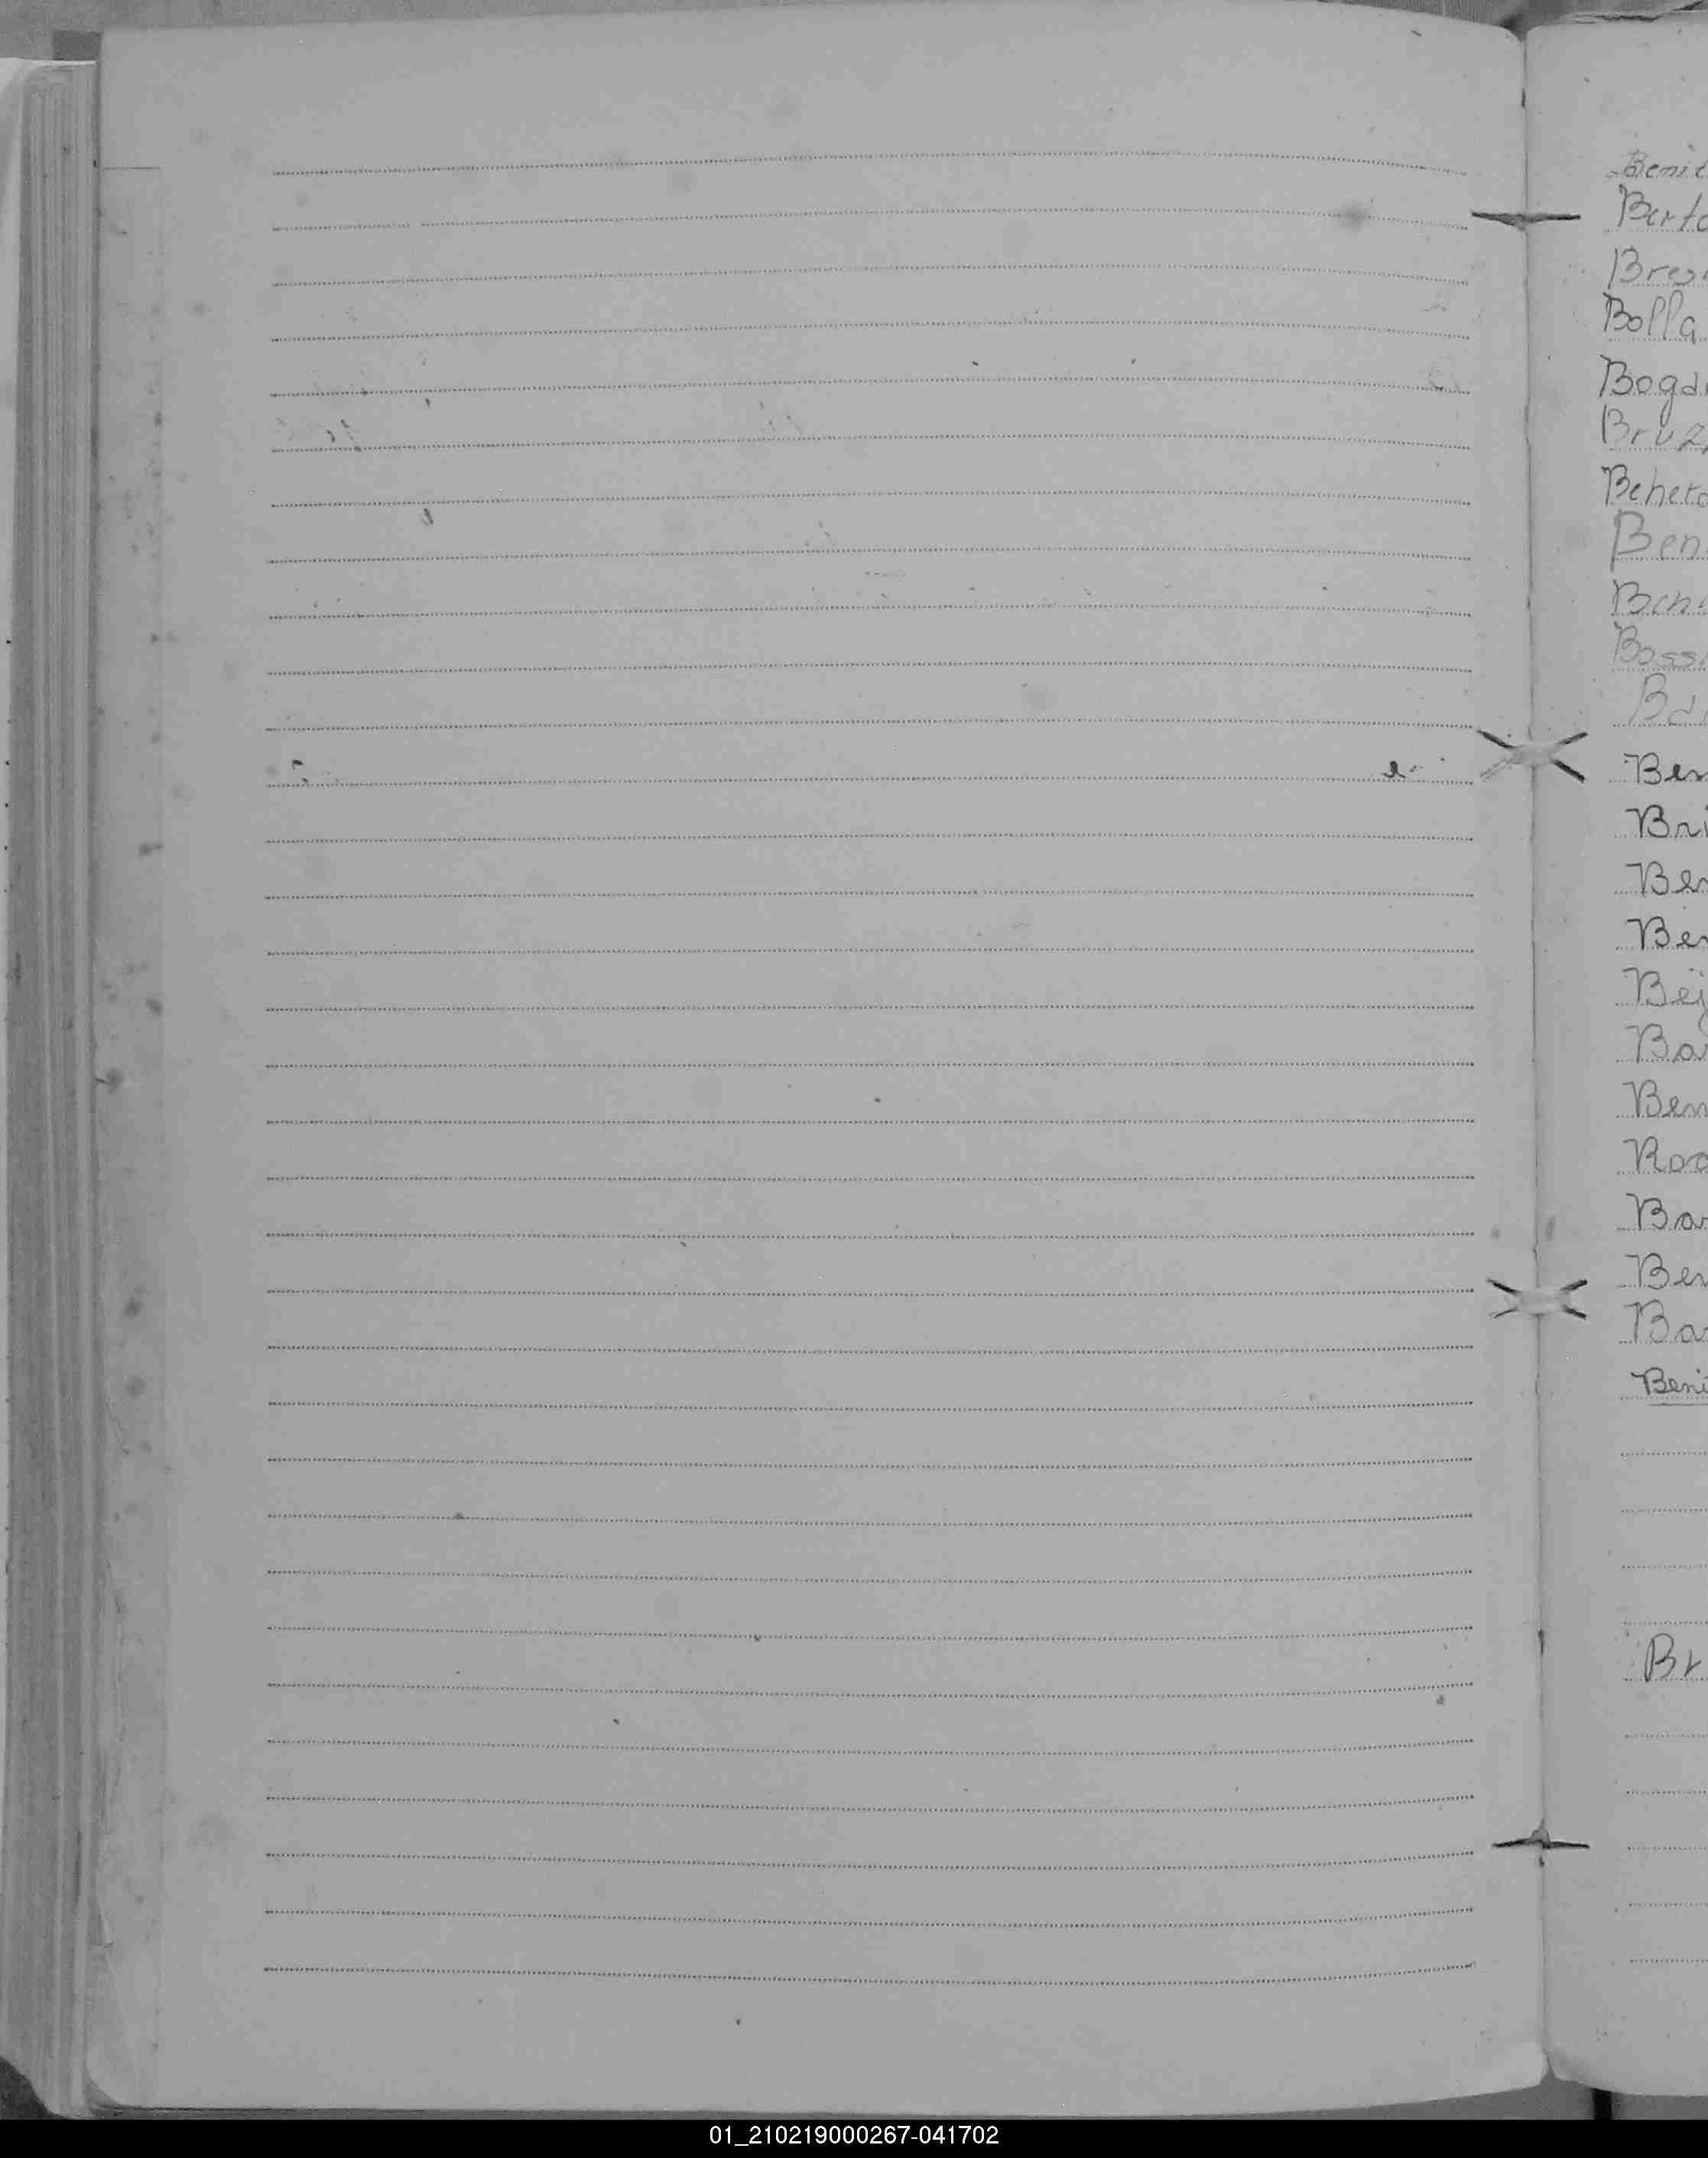 Benit
Berto
Bres
Bolla
Bogd
Bruz
Behero
Ben
Bossi
Ben
Bri
Ber
Ber
Bej
Ba
Ben
Roo
Ba
Ben
Ba
Beni
Br
01_210219000267-041702